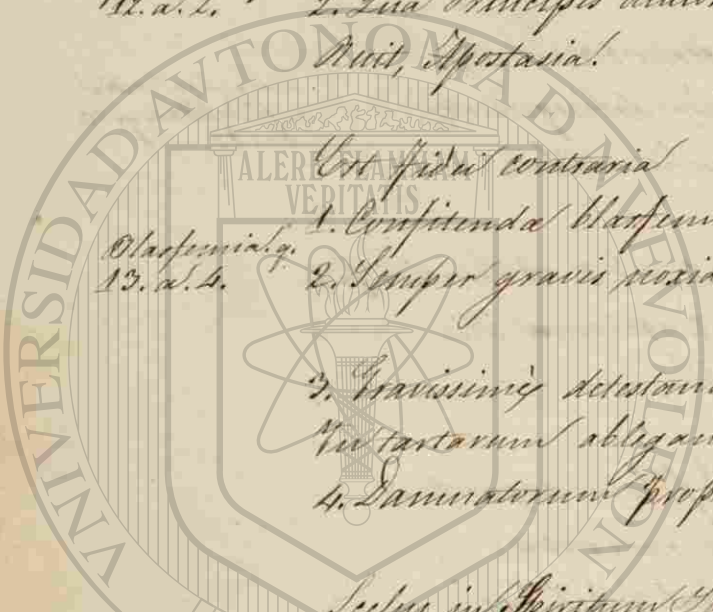 12. a. 2. 2. Qua Principis
Ruit, Apostasia.
Est fidei contraria
1. Confitenda blasfem
Blasfemia. q.
13. a. 4. 2. Semper gravis noxia
3. Gravissime detestan
In tartarum ablegan
4. Damnatorum prop
Scelus in Spiritum
UNIVERSIDAD AUTONOMA DE NUEVO LEON
ALERE FLAMMAM
VERITATIS